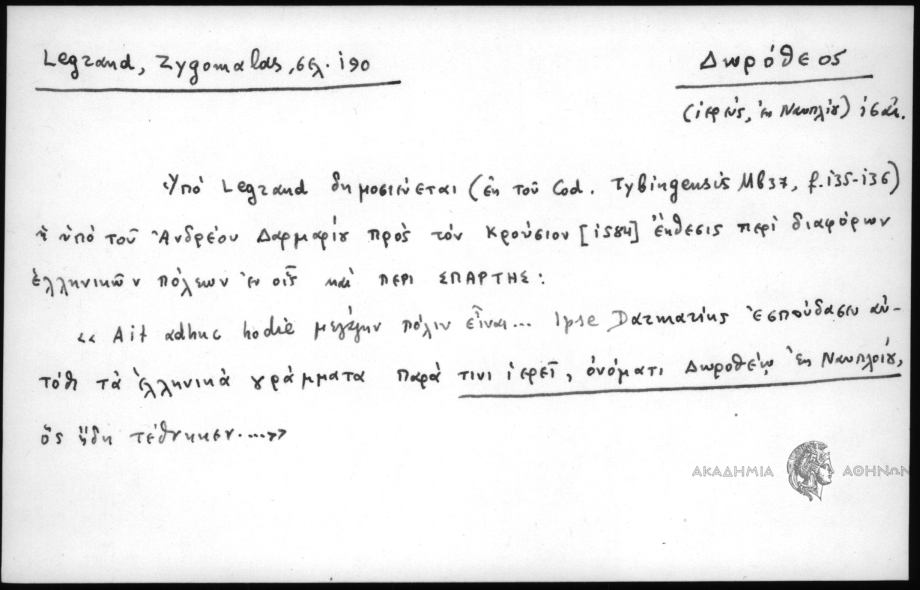 Legrand, Zygomalas, σελ. 190
Δωρόθεος
(ἱερεύς, ἐν Ναυπλίῳ) ις΄ αἰ.
Ὑπό Legrand δημοσιεύεται (ἐκ τοῦ Cod. Tybingensis Mb37, f. 135-136)
ἡ ὑπό τοῦ Ἀνδρέου Δαρμαρίου πρὸς τόν Κρούσιον [1584] ἔκθεσις περί διαφόρων
ἑλληνικῶν πόλεων ἐν οἷς καί περί ΣΠΑΡΤΗΣ:
«Ait adhuc hodie μεγάλην πόλιν εἶναι... Ipse Darmarius ἐσπούδασεν αὐ-
τόθι τὰ ἑλληνικὰ γράμματα παρά τινι ἱερεῖ, ὀνόματι Δωροθέῳ ἐκ Ναυπλοίου,
ὅς ἤδη τέθνηκεν....»
ΑΚΑΔΗΜΙΑ ΑΘΗΝΩΝ